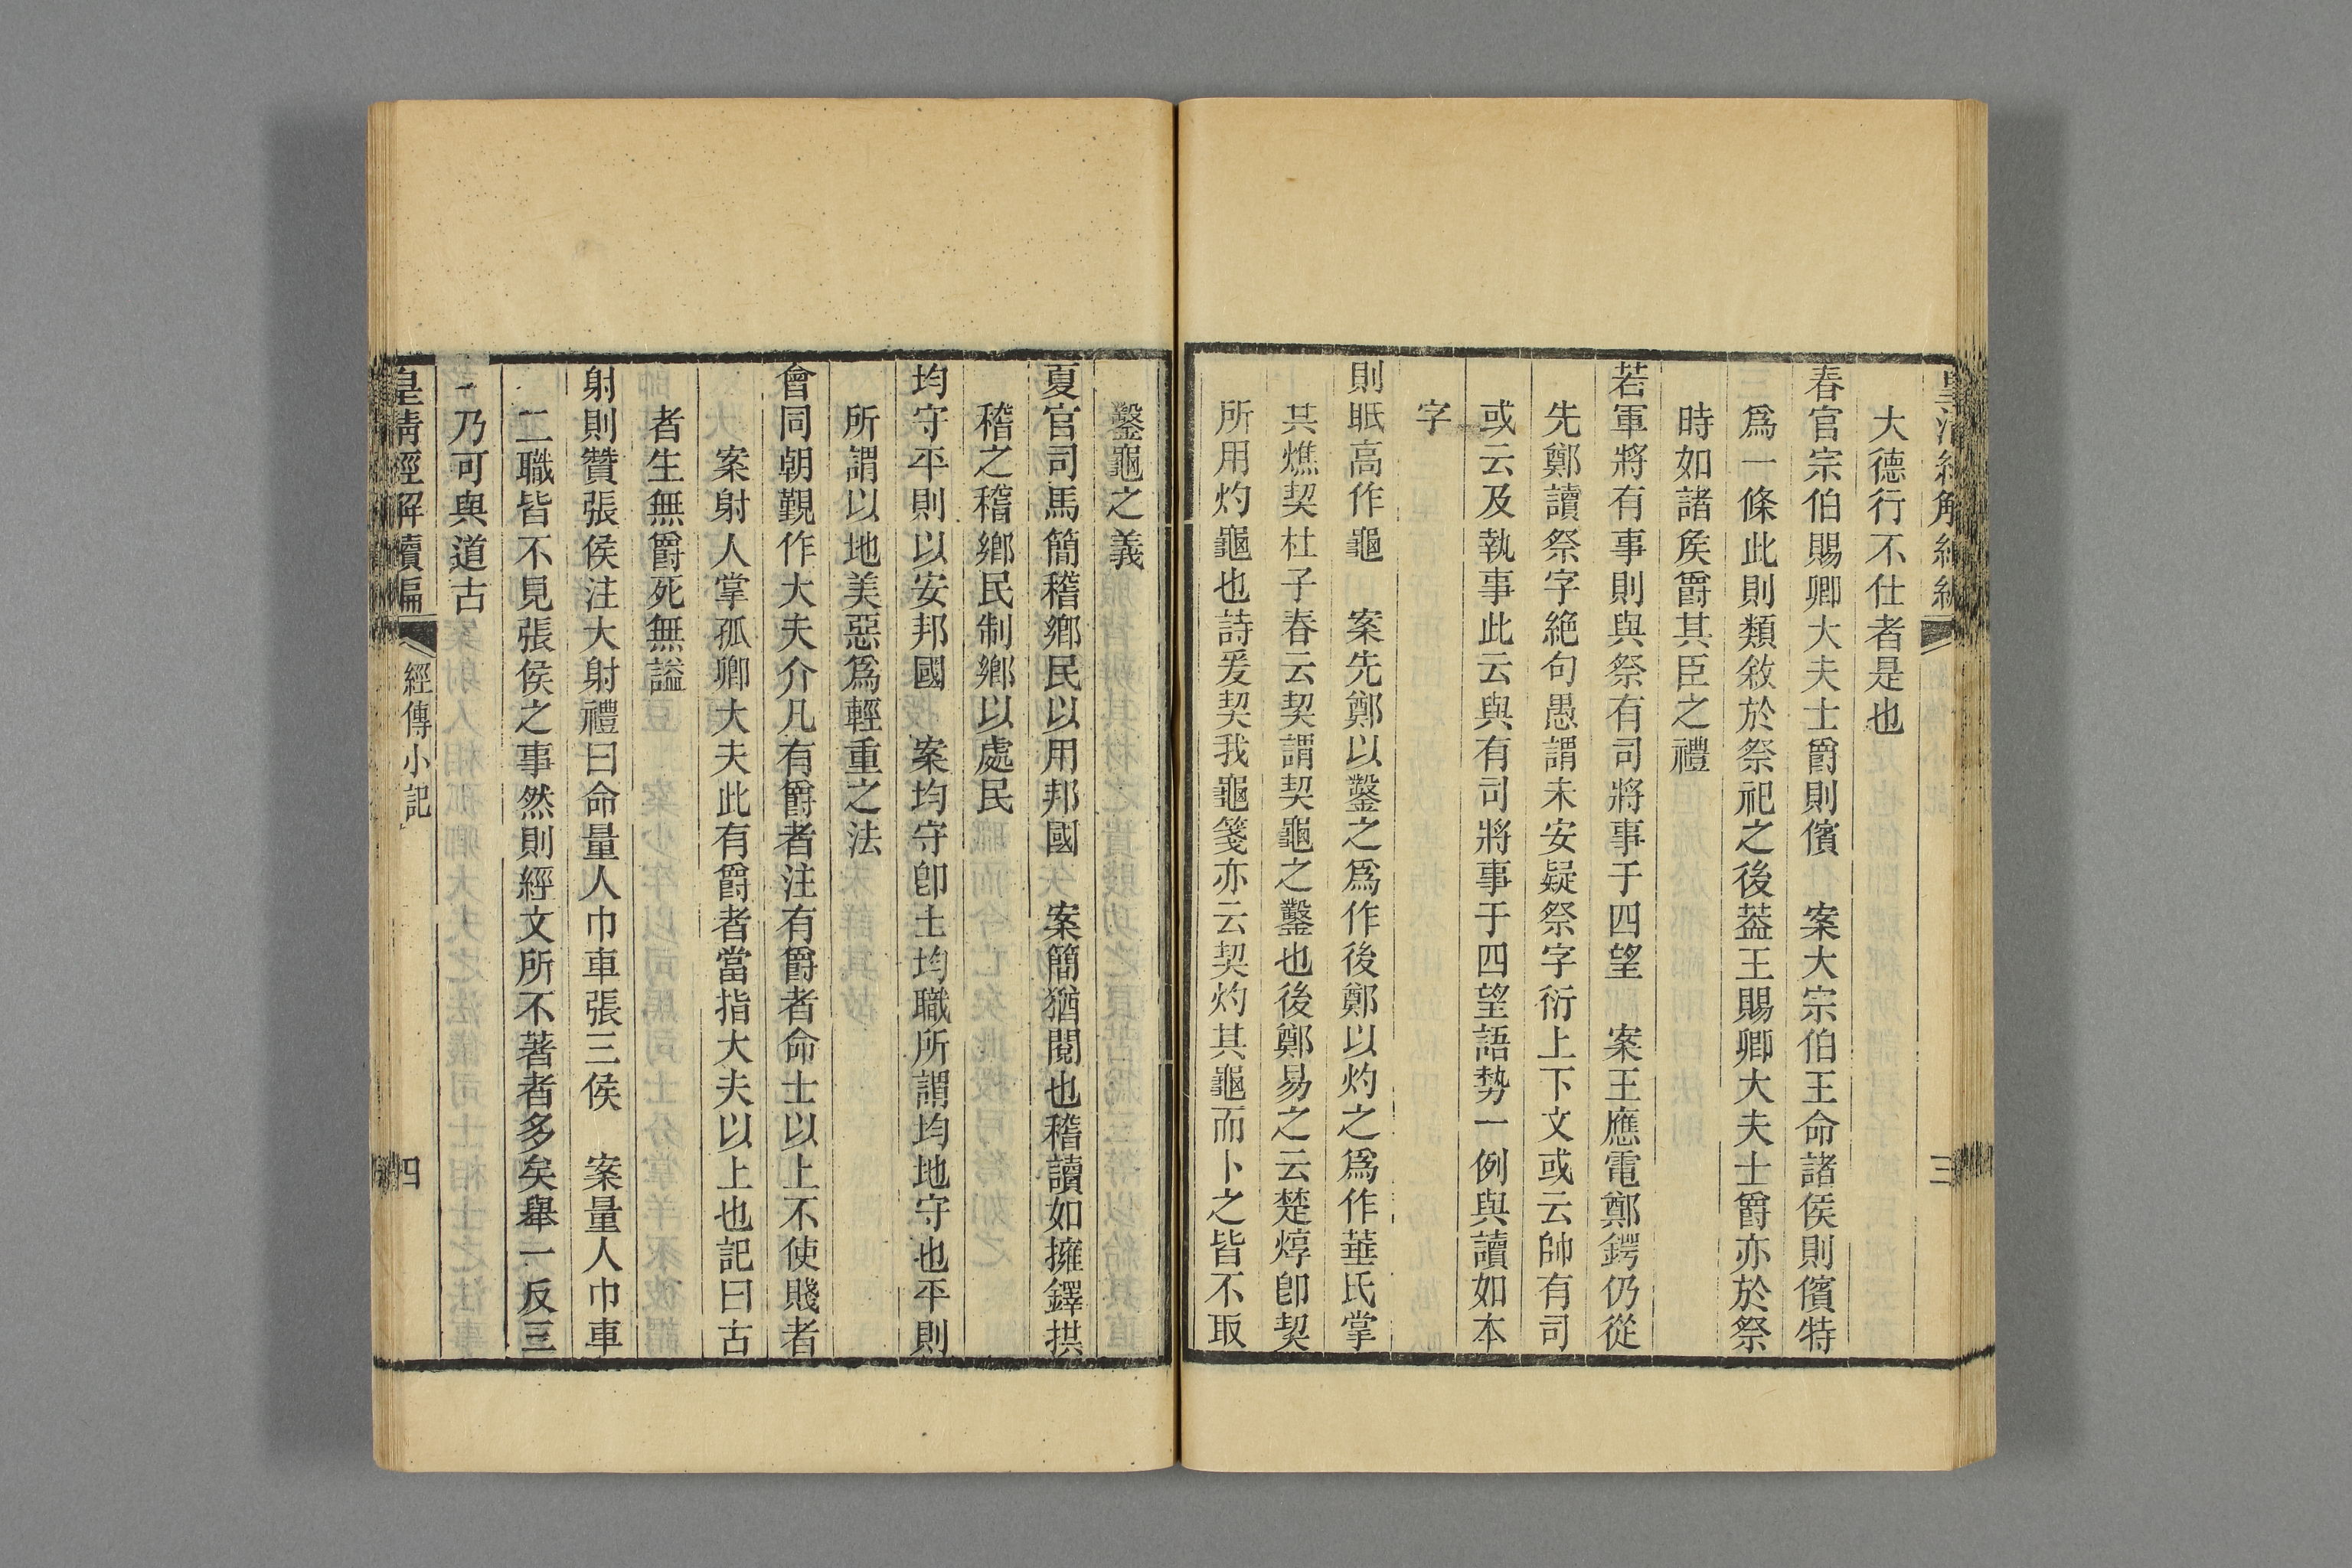 大德行不仕者是也
春官宗伯賜卿大夫士爵則儐　案大宗伯王命諸侯則儐特
爲一條此則類敘於祭祀之後葢王賜卿大夫士爵亦於祭
時如諸矦爵其臣之禮
若軍將有事則與祭有司將事于四望　案王應電鄭鍔仍從
先鄭讀祭字絶句愚謂未安疑祭字衍上下文或云帥有司
或云及執事此云與有司將事于四望語勢一例與讀如本
字
則眂高作龜　案先鄭以鑿之爲作後鄭以灼之爲作菙氏掌
共燋契杜子春云契謂契龜之鑿也後鄭易之云楚焞卽契
所用灼龜也詩爰契我龜箋亦云契灼其龜而卜之皆不取
三
鑿龜之義
夏官司馬簡稽鄉民以用邦國　案簡猶閱也稽讀如擁鐸拱
稽之稽鄉民制鄉以處民
均守平則以安邦國　案均守卽土均職所謂均地守也平則
所謂以地美惡爲輕重之法
會同朝覲作大夫介凡有爵者注有爵者命士以上不使賤者
案射人掌孤卿大夫此有爵者當指大夫以上也記曰古
者生無爵死無謚
射則贊張侯注大射禮曰命量人巾車張三侯　案量人巾車
二職皆不見張侯之事然則經文所不著者多矣舉一反三
乃可與道古
皇清經解續編
經傳小記
四